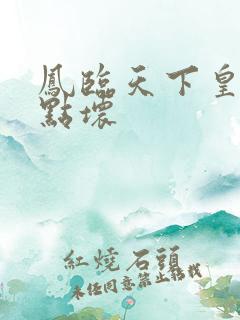 鳳臨天下皇
點壞
紅燒石頭
未任同意禁止轉載